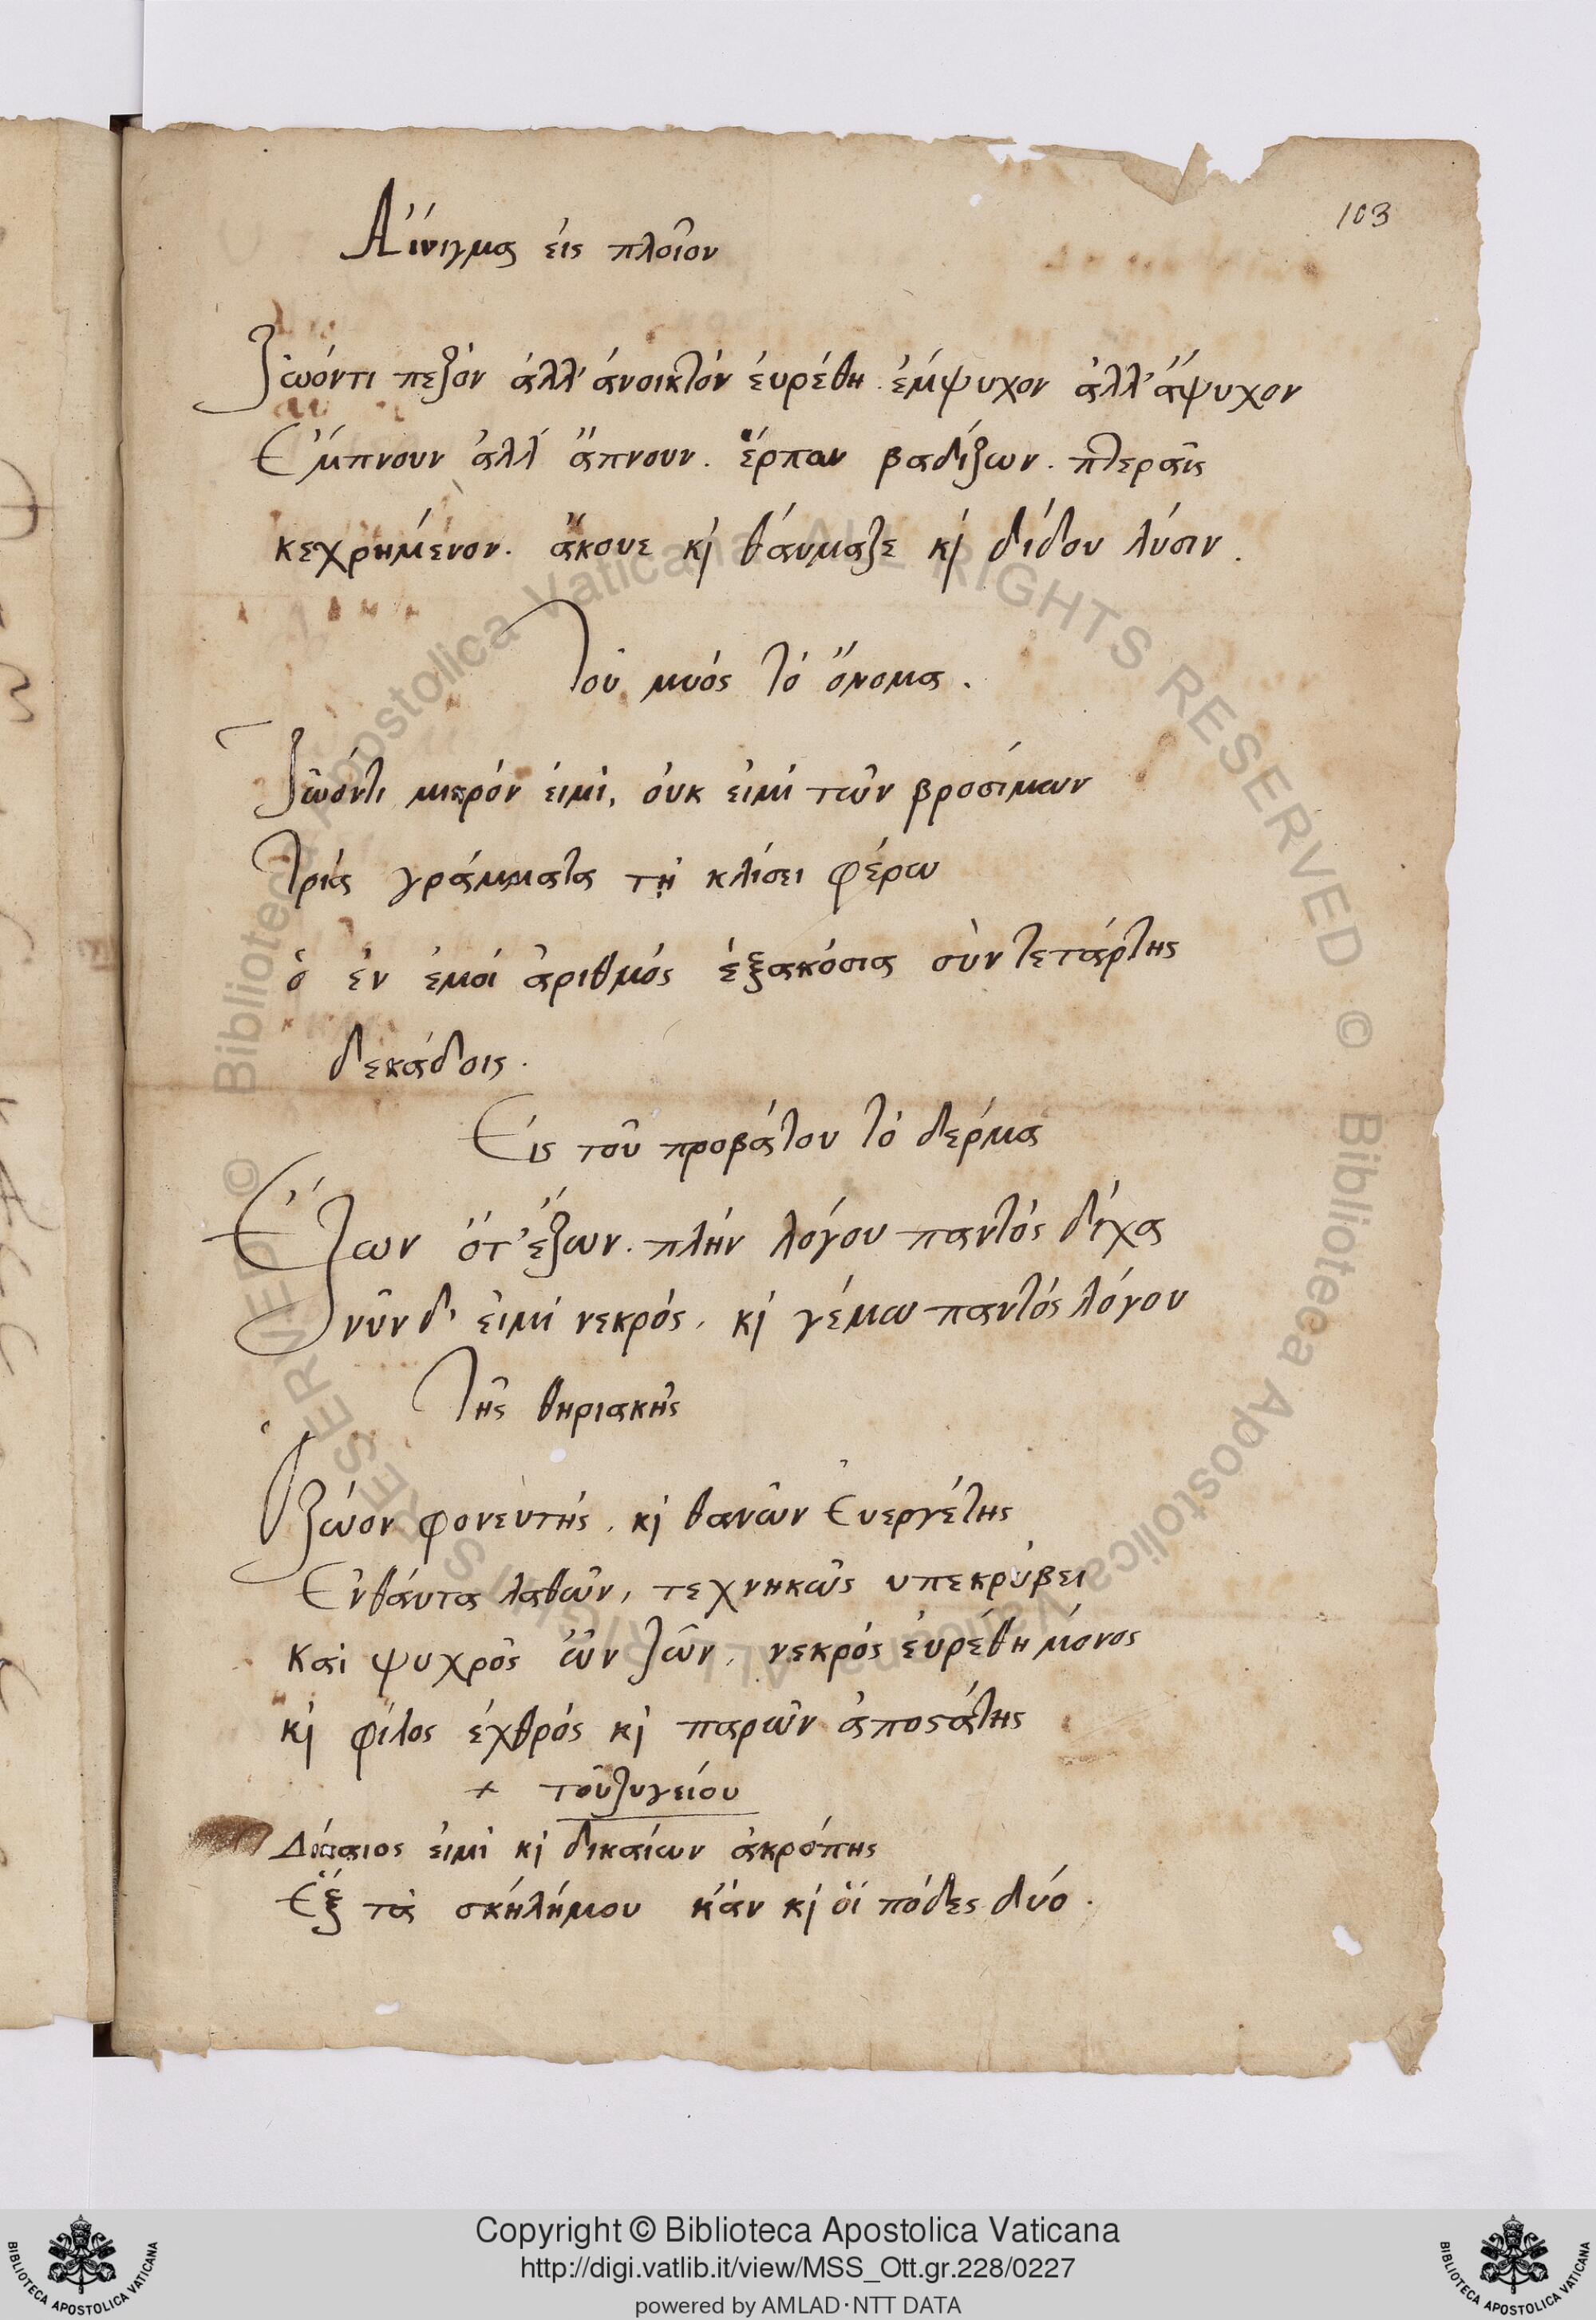 103
Αἴνιγμα εἰς πλοῖον
Ζωόντι πεζὸν ἀλλ' ἀνοικτὸν εὑρέθη. ἔμψυχον ἀλλ' ἄψυχον
Ἔμπνουν ἀλλ' ἄπνουν. ἕρπαν βαδίζων. πτεραῖς
κεχρημένον. ἄκουε κὶ θάυμαζε κὶ δίδου λύσιν.
Τοῦ μυός τὸ ὄνομα.
Ζωόντι μικρόν εἰμὶ, οὐκ εἰμὶ τῶν βροσίμων
Τρία γράμματα τῇ κλίσει φέρω
ὁ ἐν ἐμοὶ ἀριθμὸς ἑξακόσια σὺν τετάρτης
δεκάδοις.
Εἰς τοῦ προβάτου τὸ δέρμα
Ἔζων ὅτ' ἔζων. πλὴν λόγου παντὸς δίχα
νῦν δ' εἰμὶ νεκρός, κὶ γέμω παντὸς λόγου
Τῆς θηριακῆς
Ὁ ζώον φονευτής, κὶ θανῶν Ευεργέτης
Ἐνθάυτα λαθῶν, τεχνηκῶς υπεκρύβει
Και ψυχρὸς ὢν ζῶν, νεκρός ἑυρέθη μόνος
κὶ φίλος ἐχθρός κὶ παρῶν ἀποϛάτης
+ τοῦ ζυγείου
Δίκαιος ἐιμὶ κὶ δικαίων ἀκρόπης
Ἓξ τὰ σκήλήμου κἂν κὶ ὁι πόδες δύο.
Copyright © Biblioteca Apostolica Vaticana
http://digi.vatlib.it/view/MSS_Ott.gr.228/0227
powered by AMLAD·NTT DATA
BIBLIOTECA APOSTOLICA VATICANA
BIBLIOTECA APOSTOLICA VATICANA
© Biblioteca Apostolica Vaticana ALL RIGHTS RESERVED © Biblioteca Apostolica Vaticana ALL RIGHTS RESERVED